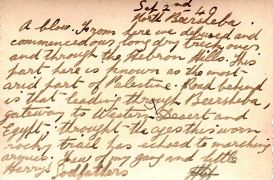 Sep 2nd 40
North Beersheba.
A blow. From here we defused and
commenced our long dry trek over
and through the Hebron Hills. This
part here is known as the most
arid part of Palestine. Road behind
is that leading through Beersheba
gateway to Western Desert and
Egypt; throught the ages this worn
rocky trail has echoed to marching
armies. Few tiny gang and little
Harrys Godfathers